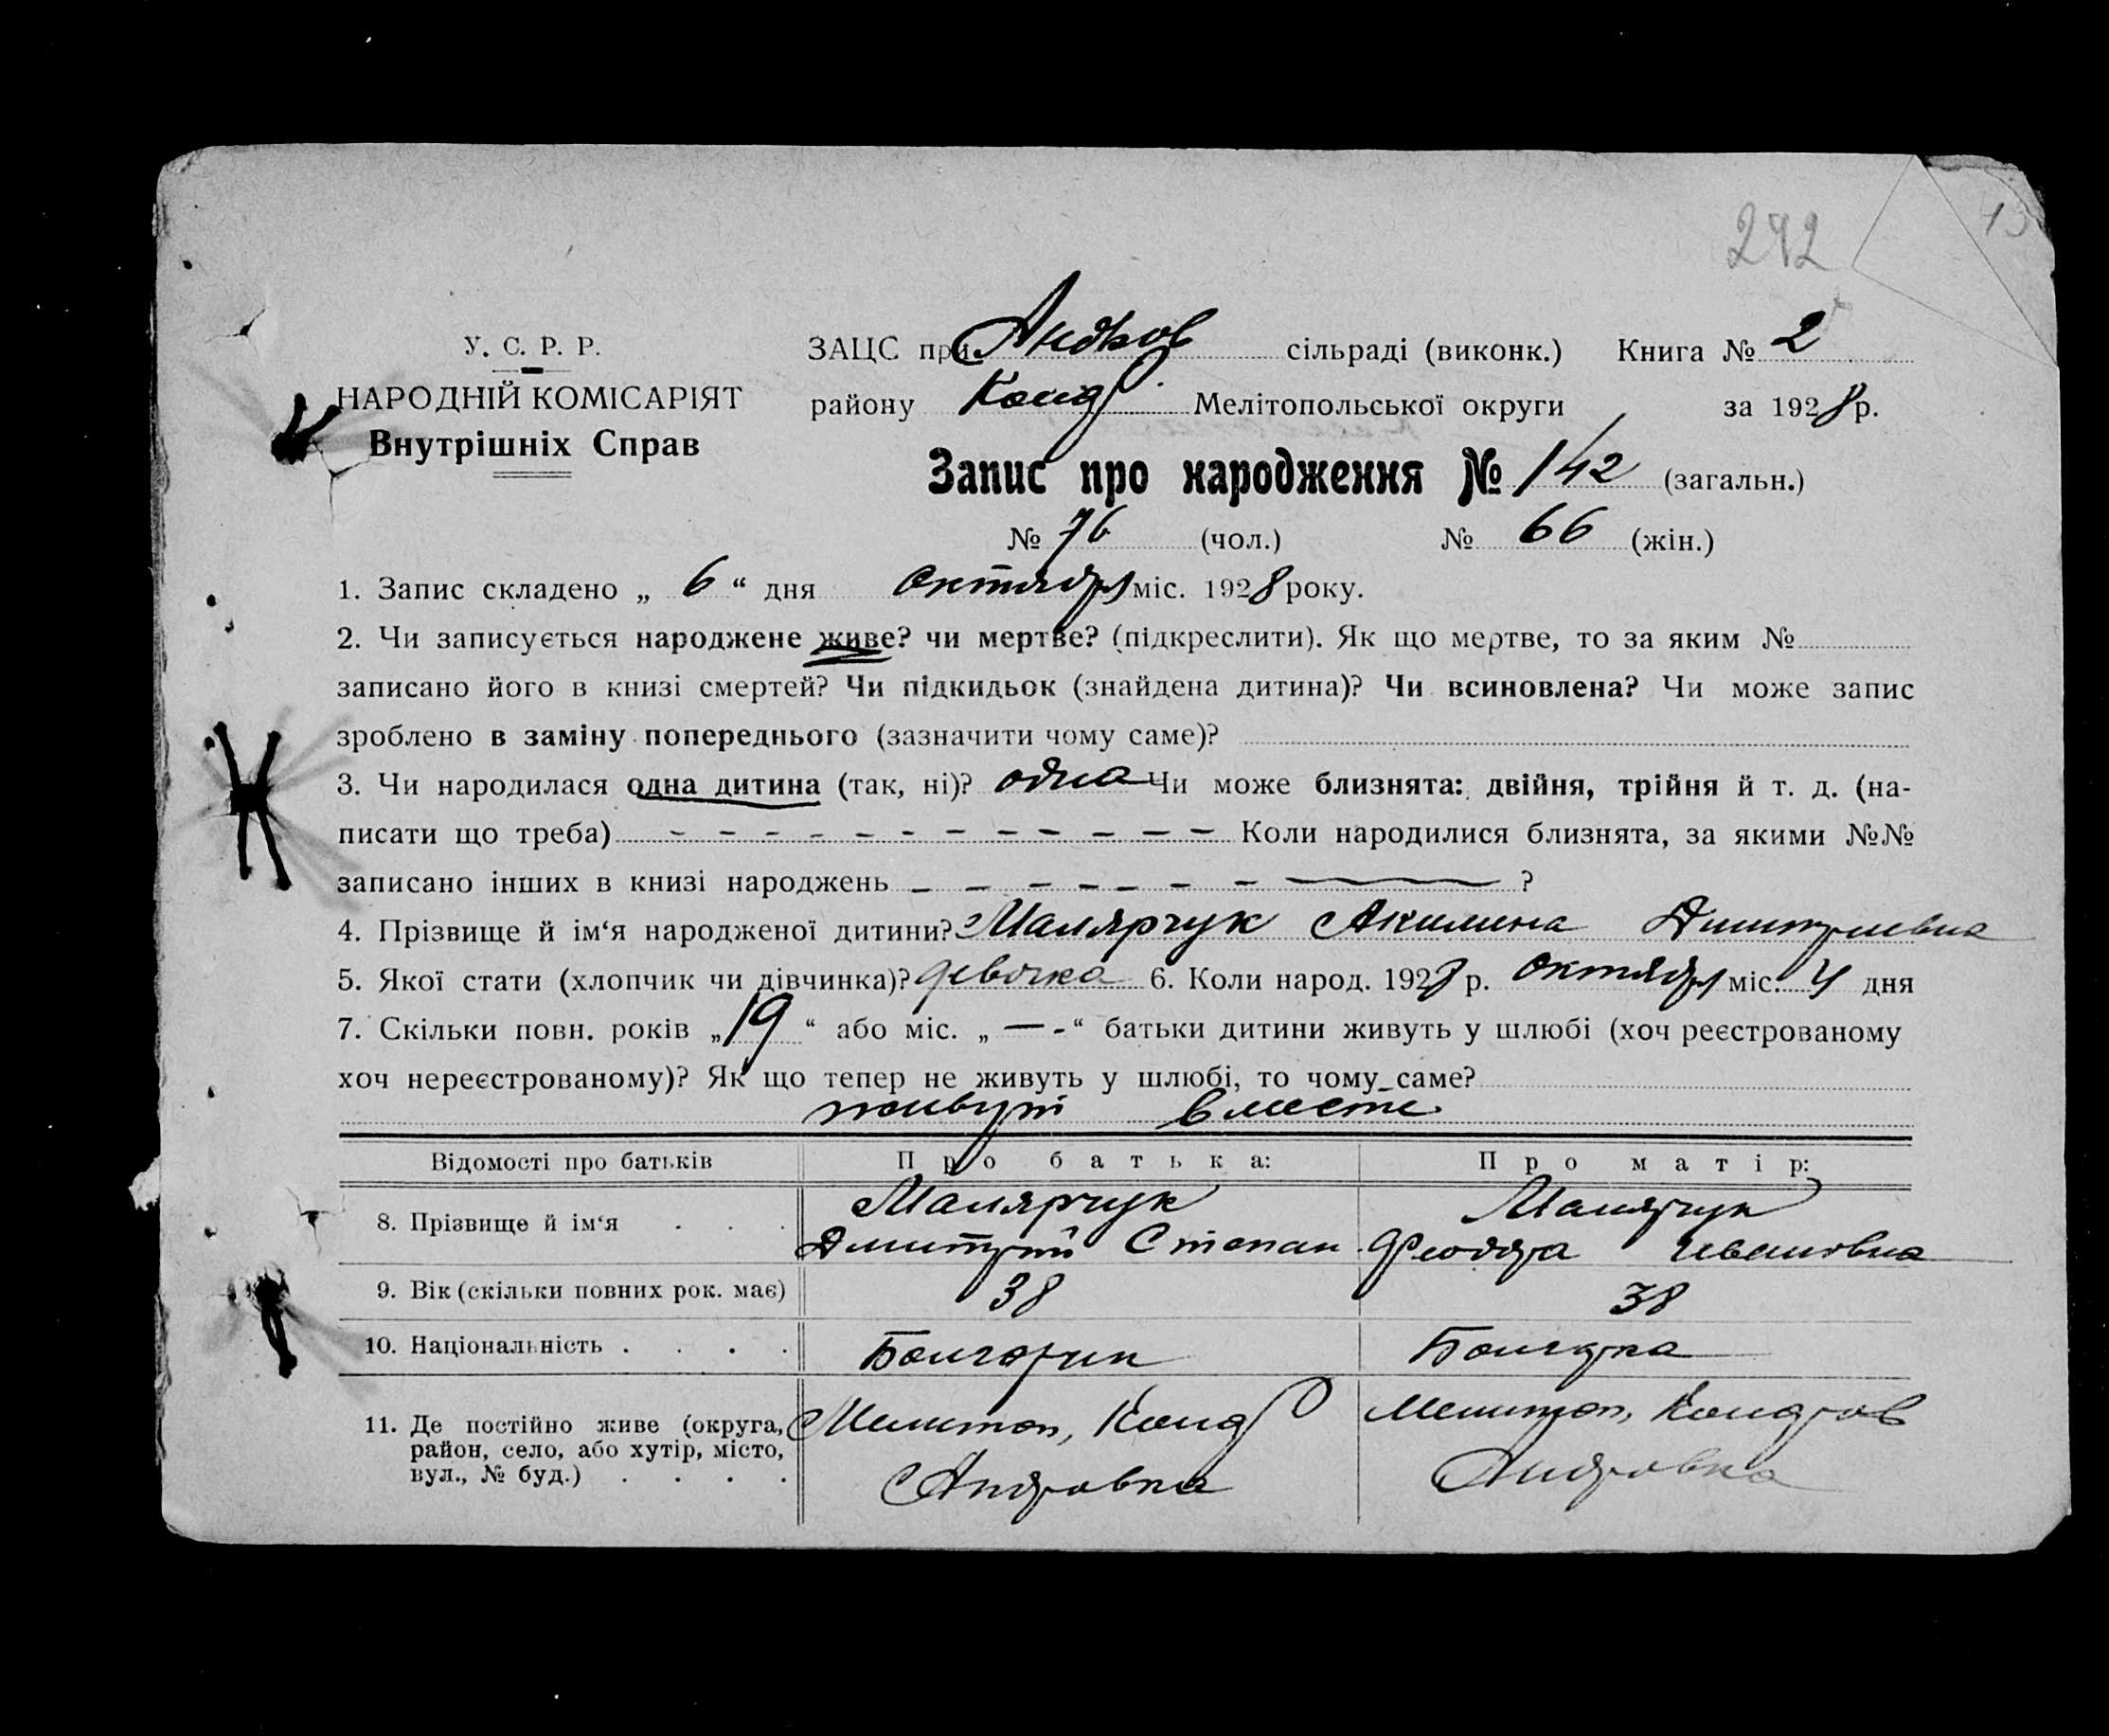 242
У. С. Р. Р.
НАРОДНІЙ КОМІСАРІЯТ
Внутрішніх Справ
ЗАЦС при Андров сільраді (виконк.) Книга № 2
району Конд Мелітопольської округи за 1928 р.
Запис про народження № 142 (загальн.)
№ 76 (чол.) № 66 (жін.)
1. Запис складено „ 6 “ дня октября міс. 1928 року.
2. Чи записується народжене живе? чи мертве? (підкреслити). Як що мертве, то за яким №
записано його в книзі смертей? Чи підкидьок (знайдена дитина)? Чи всиновлена? Чи може запис
зроблено в заміну попереднього (зазначити чому саме)?
3. Чи народилася одна дитина (так, ні)? одна Чи може близнята: двійня, трійня й т. д. (на-
писати що треба) - - - - - - - - - - - - Коли народилися близнята, за якими №№
записано інших в книзі народжень - - - - - - - ?
4. Прізвище й ім‘я народженої дитини? Малярчук Акилина Дмитриевна
5. Якої стати (хлопчик чи дівчинка)? девочка 6. Коли народ. 1928 р. октября міс. 4 дня
7. Скільки повн. років „ 19 “ або міс. „ — - “ батьки дитини живуть у шлюбі (хоч реєстрованому
хоч нереєстрованому)? Як що тепер не живуть у шлюбі, то чому саме?
живут вместе
Відомості про батьків Про батька: Про матір:
8. Прізвище й ім‘я . . . Малярчук Малярчук
Дмитрий Степан Феодора Ивановна
9. Вік (скільки повних рок. має) 38 38
10. Національність . . . . Болгарин Болгарка
11. Де постійно живе (округа, Мелитоп, Конд Мелитоп, Кондров
район, село, або хутір, місто,
вул., № буд.) . . . . Андровка Андровка